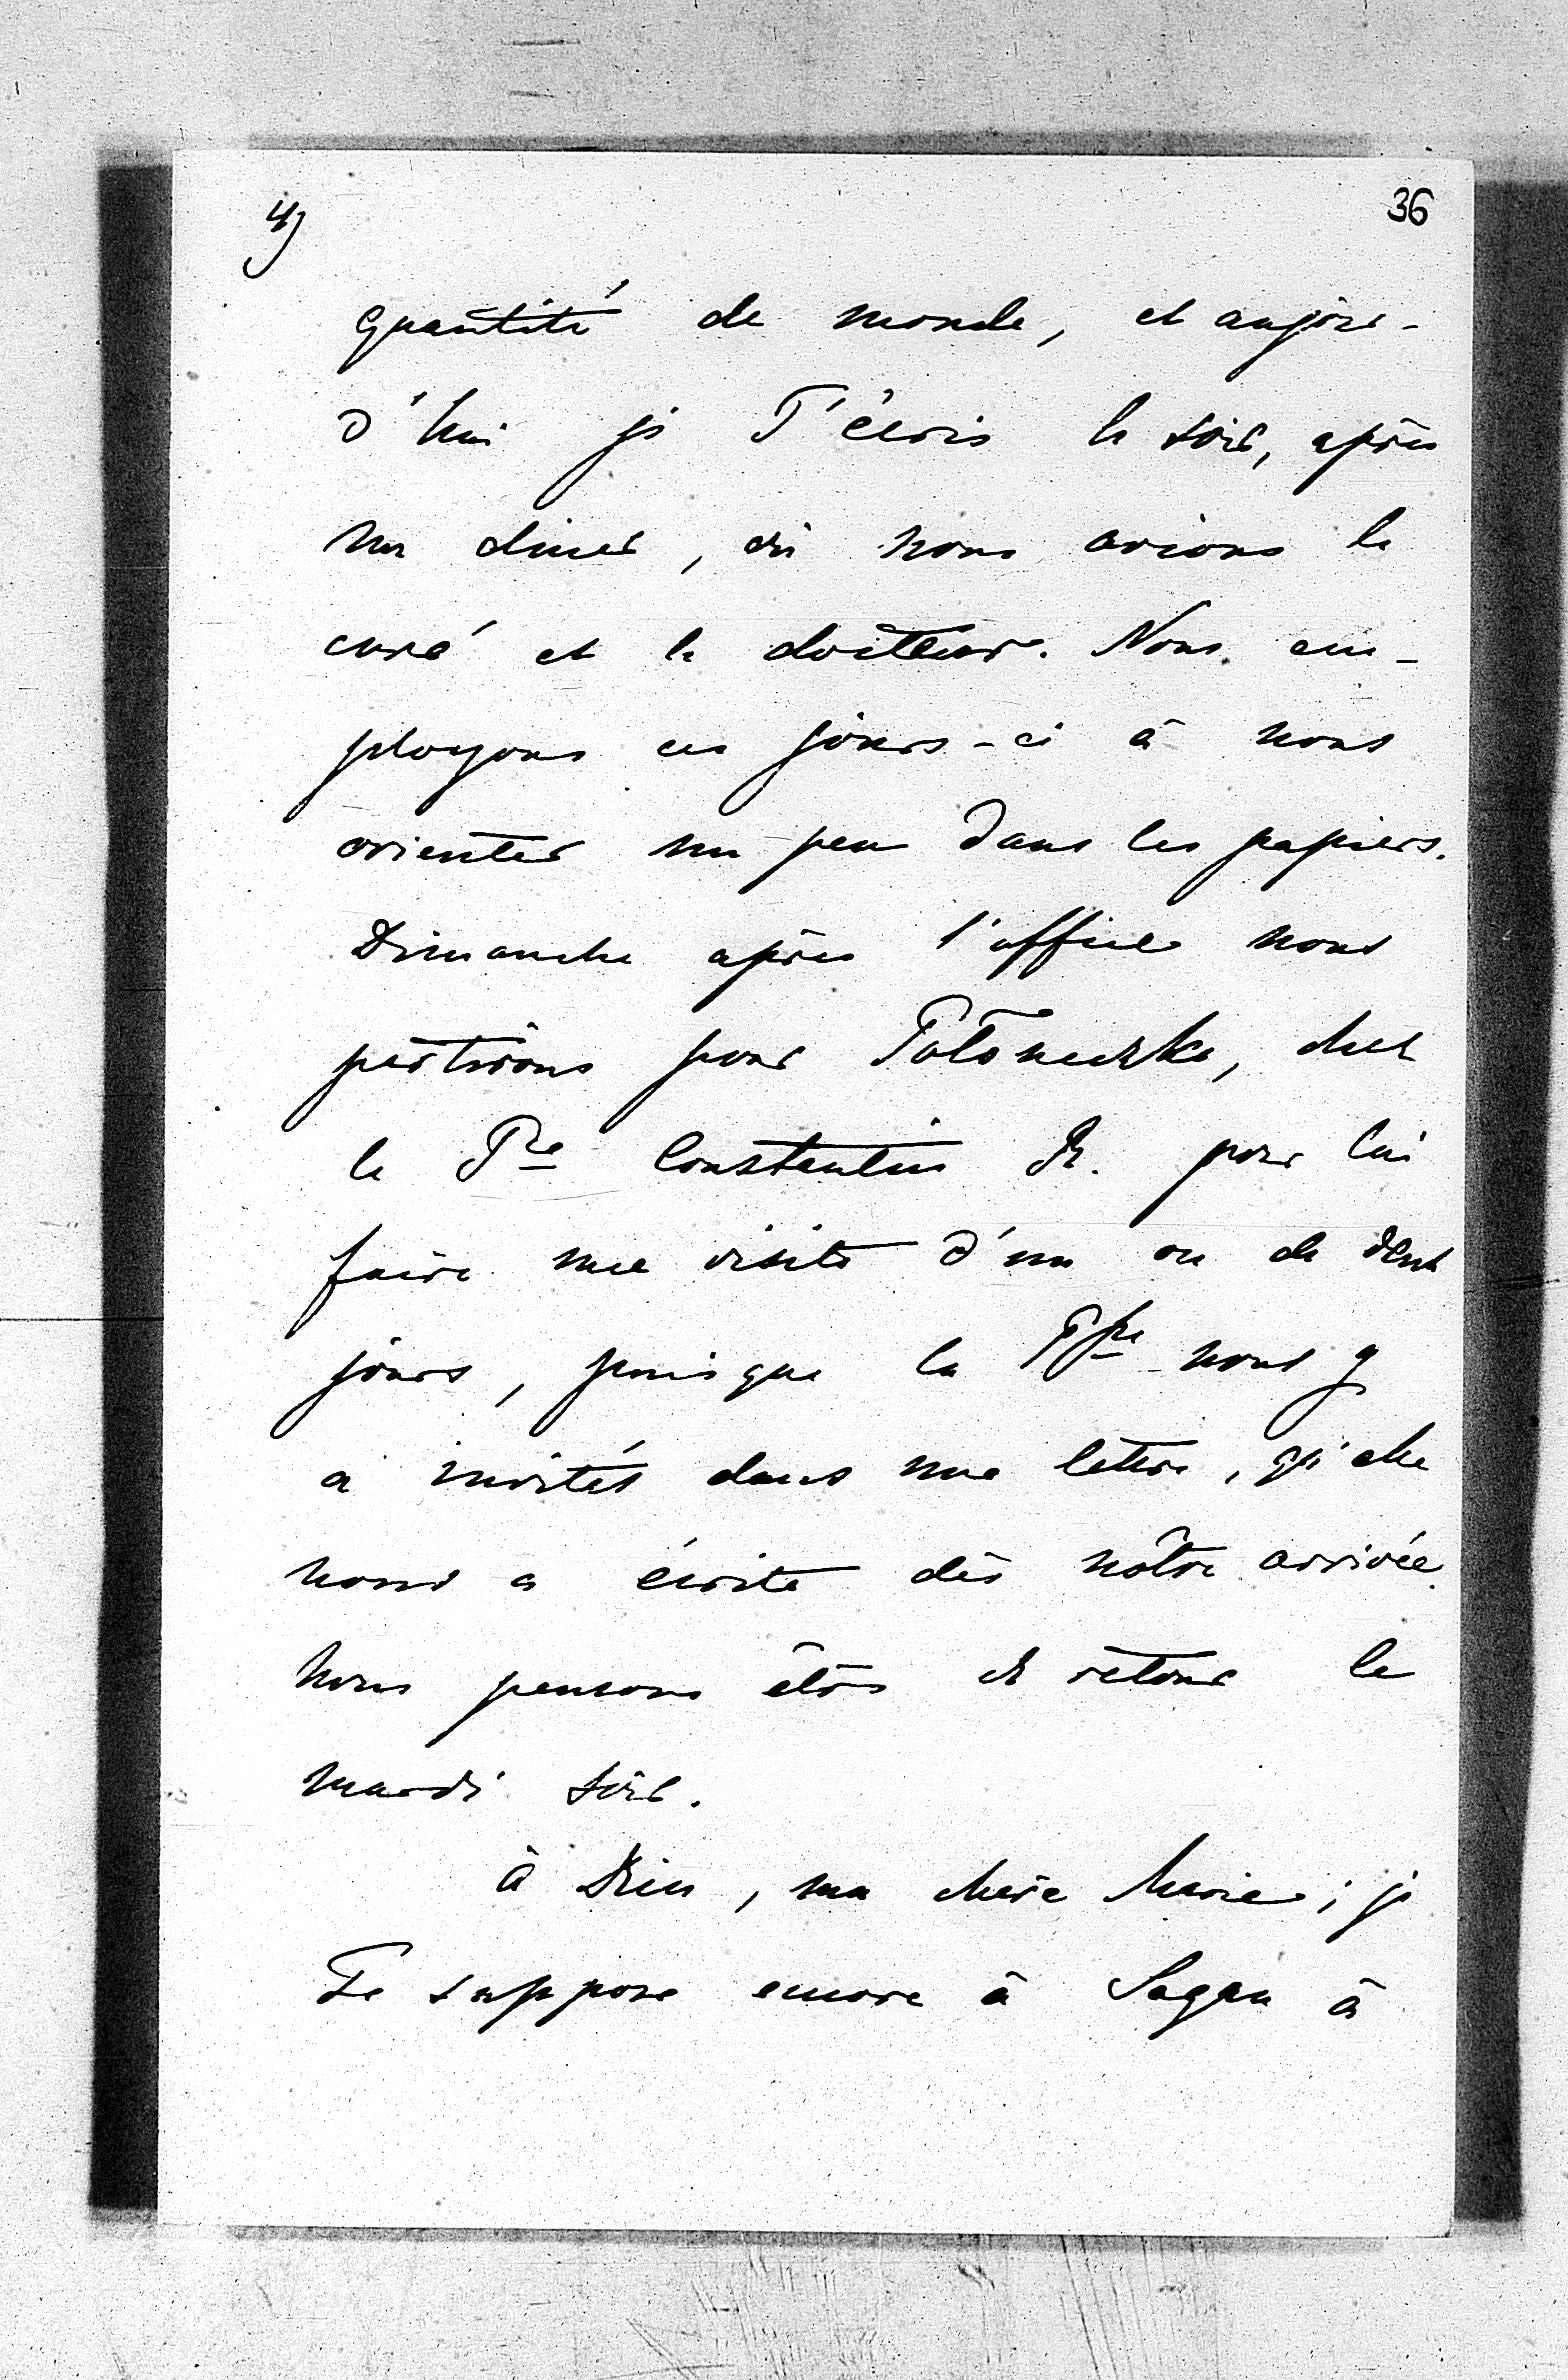 4) 36
quantité de monde, et aujour-
d'hui je T'écris le soir, après
un diner, où nous avions le
curé et le docteur. Nous em-
ployons ces jours-ci à nous
orienter un peu dans les papiers.
Dimanche après l'office nous
partirons pour chez
le Pce Constantin R. pour lui
faire une visite d'un ou de deux
jours, puisque la Psse nous y
a invités dans une lettre, qu'elle
nous a écrite dès nôtre arrivée.
Nous pensons être de retour le
mardi soir.
à Dieu, ma chère Marie; je
Te suppose encore à Sagan à